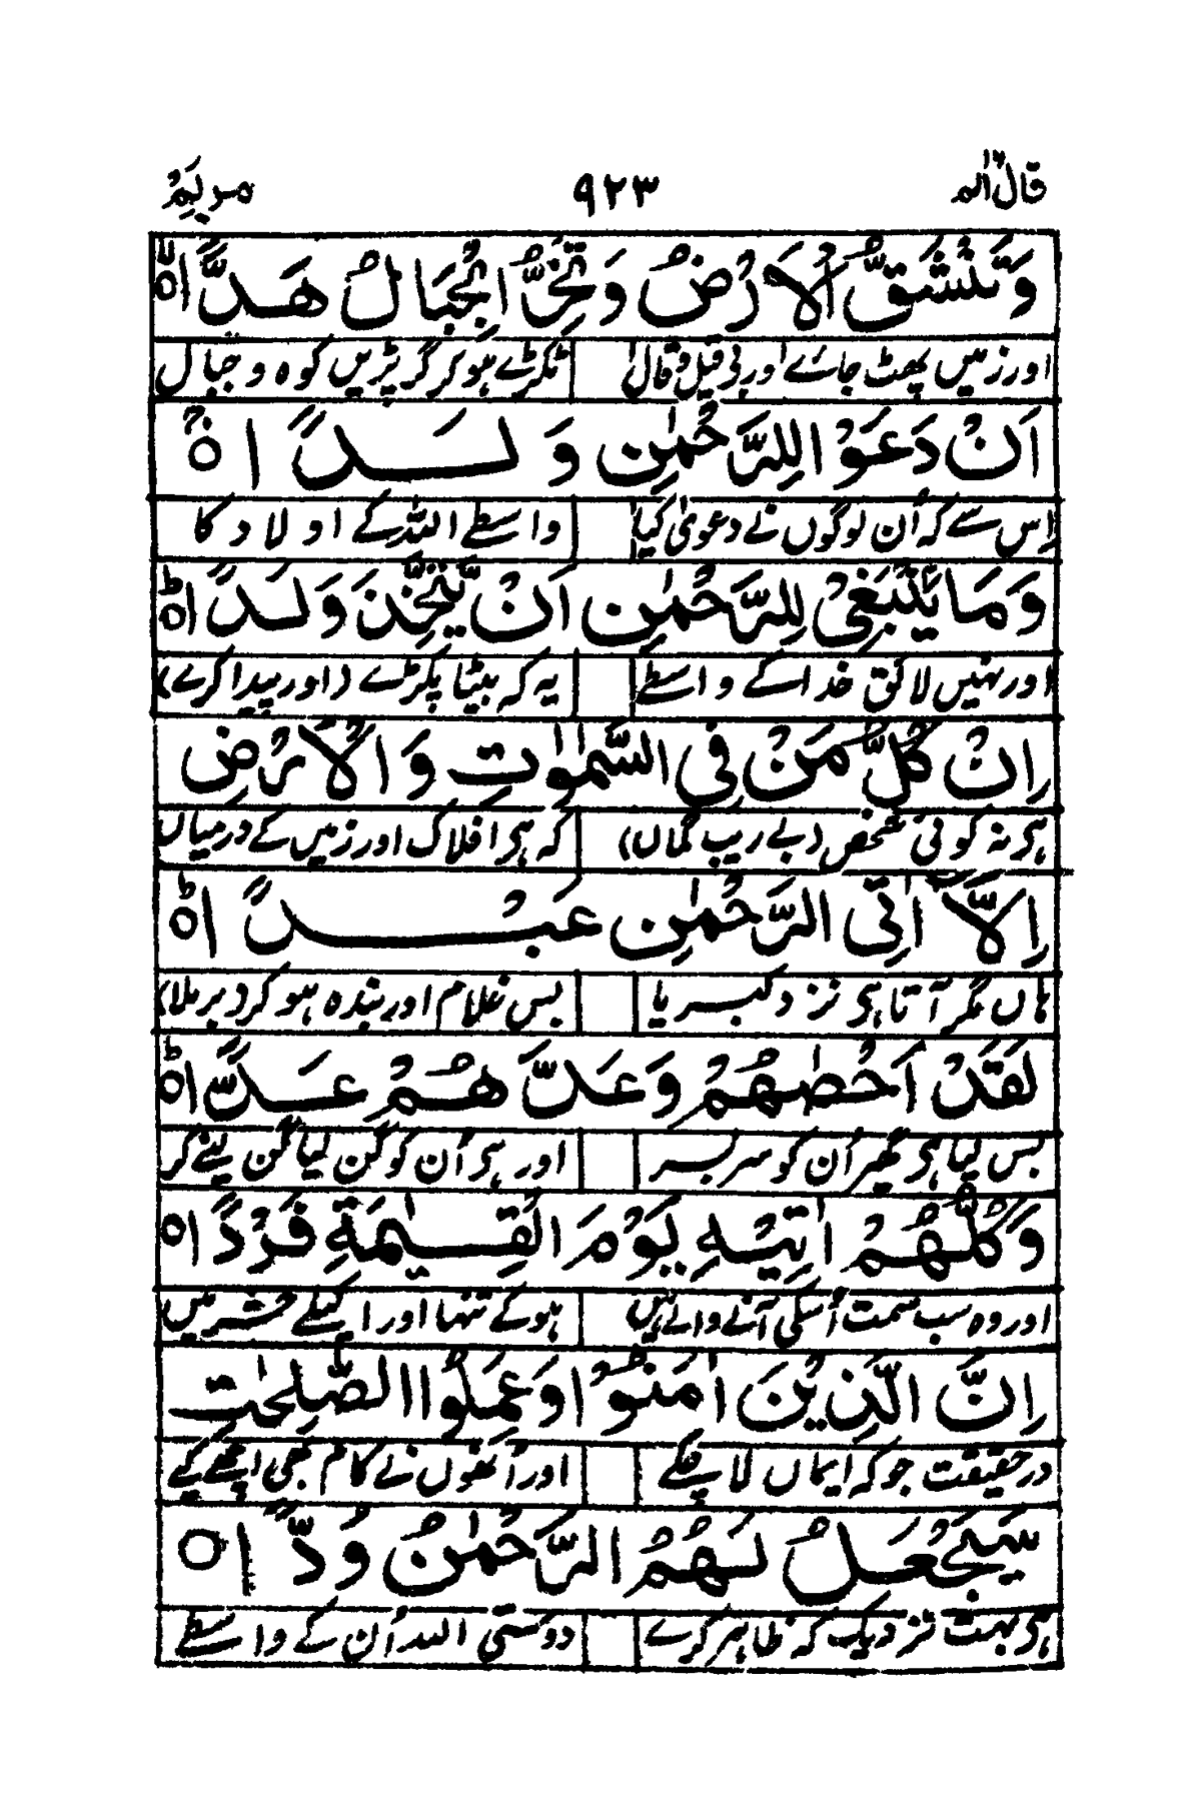 قال الم ۱۶ ۹۲۳ مریم
وَتَنْشَقُّ الْاَرْضُ وَتَخِرُّ الْجِبَالُ هَدًّا ۙ
اور زمیں پھٹ جائے اور بے قیل و قال ٹکڑے ہو کر گر پڑیں کوہ و جبال
اَنْ دَعَوْا لِلرَّحْمٰنِ وَلَدًا ۚ
اِس سے کہ اُن لوگوں نے دعویٰ کیا واسطے اللہ کے اولاد کا
وَمَا يَنْبَغِىْ لِلرَّحْمٰنِ اَنْ يَّتَّخِذَ وَلَدًا ؕ
اور نہیں لائق خدا کے واسطے یہ کہ بیٹا پکڑے (اور پیدا کرے)
اِنْ كُلُّ مَنْ فِى السَّمٰوٰتِ وَالْاَرْضِ
ہی نہ کوئی شخص (بے ریب گماں) کہ ہی افلاک اور زمیں کے درمیاں
اِلَّاۤ اٰتِى الرَّحْمٰنِ عَبْدًا ؕ
ہاں مگر آتا ہی نزد کبریا بس غلام اور بندہ ہو کر (برملا)
لَقَدْ اَحْصٰهُمْ وَعَدَّهُمْ عَدًّا ؕ
بس لیا ہی گھیر اُن کو سر بسر اور ہی اُن کو گن لیا گن لینے کر
وَكُلُّهُمْ اٰتِيْهِ يَوْمَ الْقِيٰمَةِ فَرْدًا ۝
اور وہ سب سمت اُسکی آنے والے ہیں ہو کے تنہا اور اکیلے حشر میں
اِنَّ الَّذِيْنَ اٰمَنُوْا وَعَمِلُوا الصّٰلِحٰتِ
در حقیقت جو کہ ایماں لا چکے اور اُنھوں نے کام بھی اچھے کیے
سَيَجْعَلُ لَهُمُ الرَّحْمٰنُ وُدًّا ۝
ہی بہت نزدیک کہ ظاہر کرے دوستی اللہ اُن کے واسطے